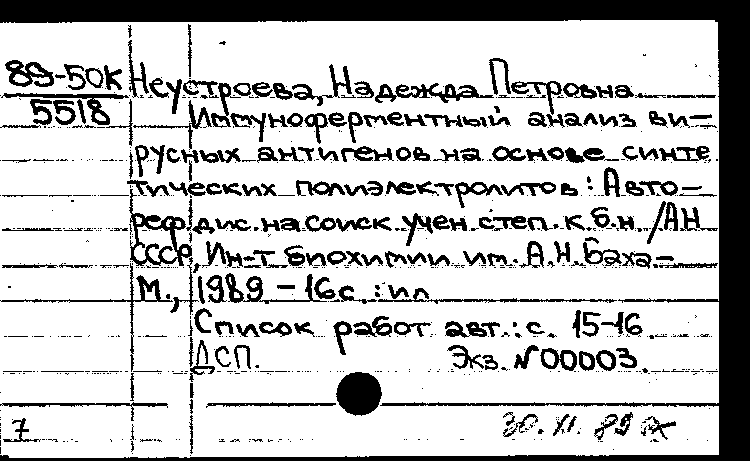 89-50К Неустроева, Надежда Петровна
5518 Иммуноферментный анализ ви-
русных антигенов на основе синте
тических полиэлектролитов : Авто-
реф. дис. на соиск. учен. степ. к.б.н. /АН
СССР, Ин-т биохимии им. А.Н. Баха-
М., 1989. - 16 с. : ил.
Список работ авт.: с. 15-16.
ДСП. Экз. №00003.
7 30.XI.89